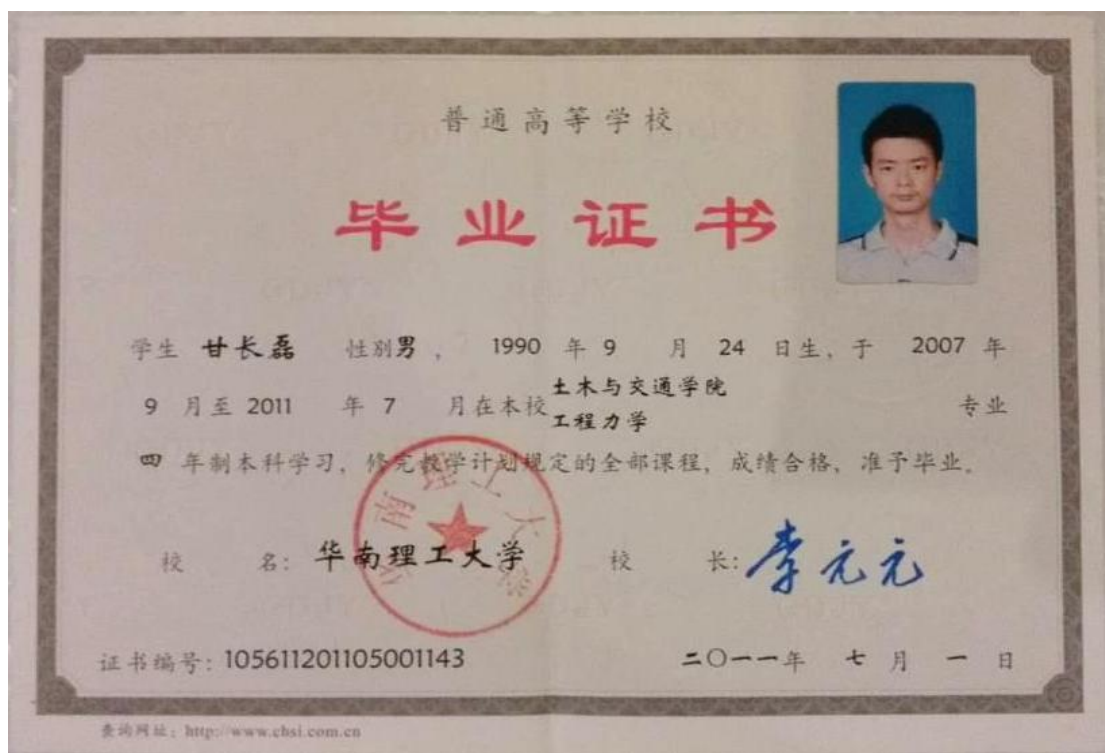 普通高等学校
毕业证书
学生 甘长磊 性别 男 ， 1990 年 9 月 24 日生，于 2007 年
9 月至 2011 年 7 月在本校 土木与交通学院 工程力学 专业
四 年制本科学习，修完教学计划规定的全部课程，成绩合格，准予毕业。
校 名：华南理工大学 校 长：李元元
华南理工大学
证书编号：105611201105001143 二〇一一年 七 月 一 日
查询网址：http://www.chsi.com.cn